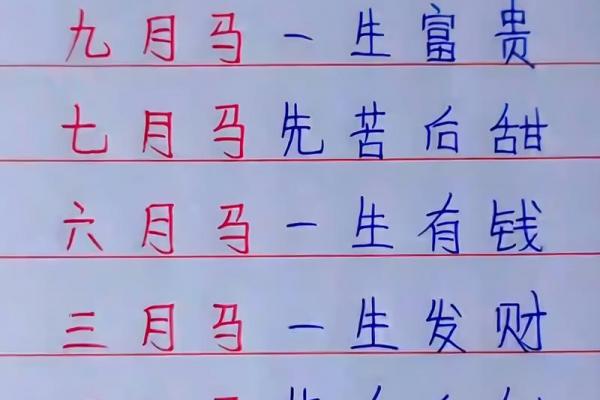 九月马一生富贵
七月马先苦后甜
六月马一生有钱
三月马一生发财